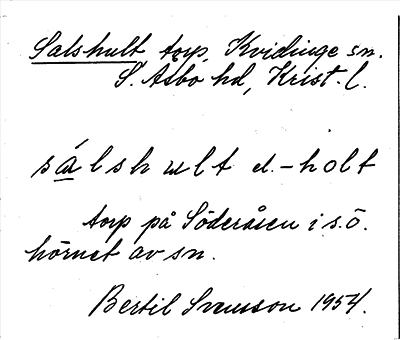 Salshult torp, Kvidinge sn.
S. Åsbo hd, Krist. l.
sálshult el. -holt
torp på Söderåsen i s.ö.
hörnet av sn.
Bertil Svensson 1954.